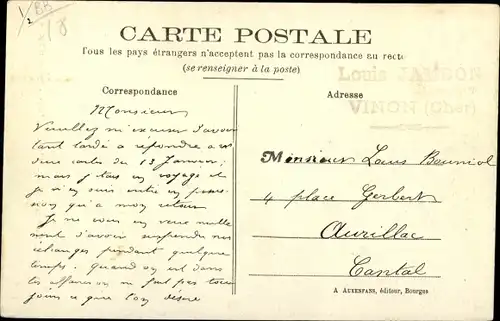 1/2 BB
18
CARTE POSTALE
Tous les pays étrangers n'acceptent pas la correspondance au recto
(se renseigner à la poste)
Louis JANSON
VINON (Cher)
Correspondance
Adresse
Monsieur
Veuillez m'excuser d'avoir
tant tardé a répondre a vo
cartes du 13 Janvier;
mais j'étais en voyage et
je n'y suis entré en posses-
sion qu'a mon retour
Je ne vous en veux nulle
ment d'avoir suspendu nos
échanges pendant quelque
temps. Quand on est dans
les affaires on ne fait pas tou
jours ce que l'on désire
Monsieur Louis Bouniol
4 place Gerbert
Aurillac
Cantal
A AUXENFANS, éditeur, Bourges